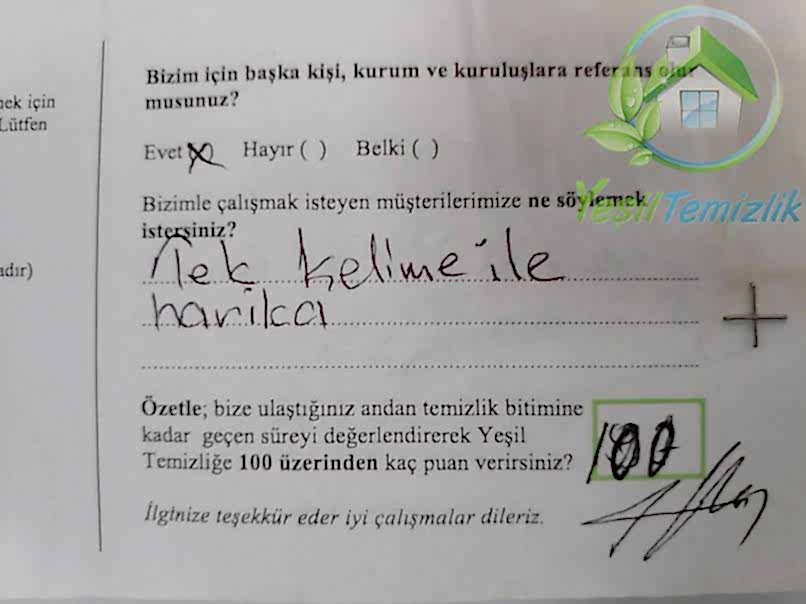 Bizim için başka kişi, kurum ve kuruluşlara referans olur
musunuz?
nek için
Lütfen
Evet (X) Hayır ( ) Belki ( )
Bizimle çalışmak isteyen müşterilerimize ne söylemek
istersiniz?
Yeşil Temizlik
Tek kelime ile
harika
adır)
Özetle; bize ulaştığınız andan temizlik bitimine
kadar geçen süreyi değerlendirerek Yeşil
Temizliğe 100 üzerinden kaç puan verirsiniz?
100
İlginize teşekkür eder iyi çalışmalar dileriz.